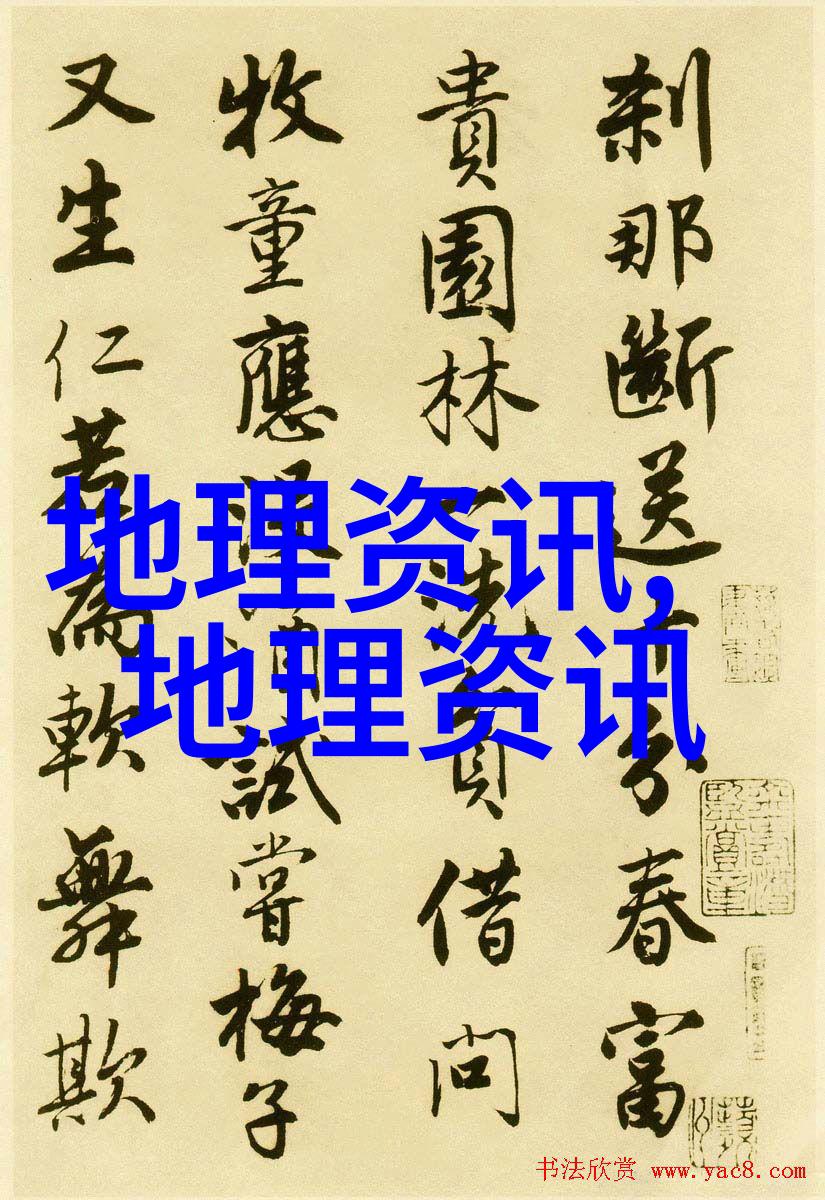 刹那斷送十分春富
貴園林一洗貧借問
牧童應沒酒試嘗梅子
又生仁若為軟舞欺
地理资讯,
地理资讯
书法欣赏 www.yac8.com